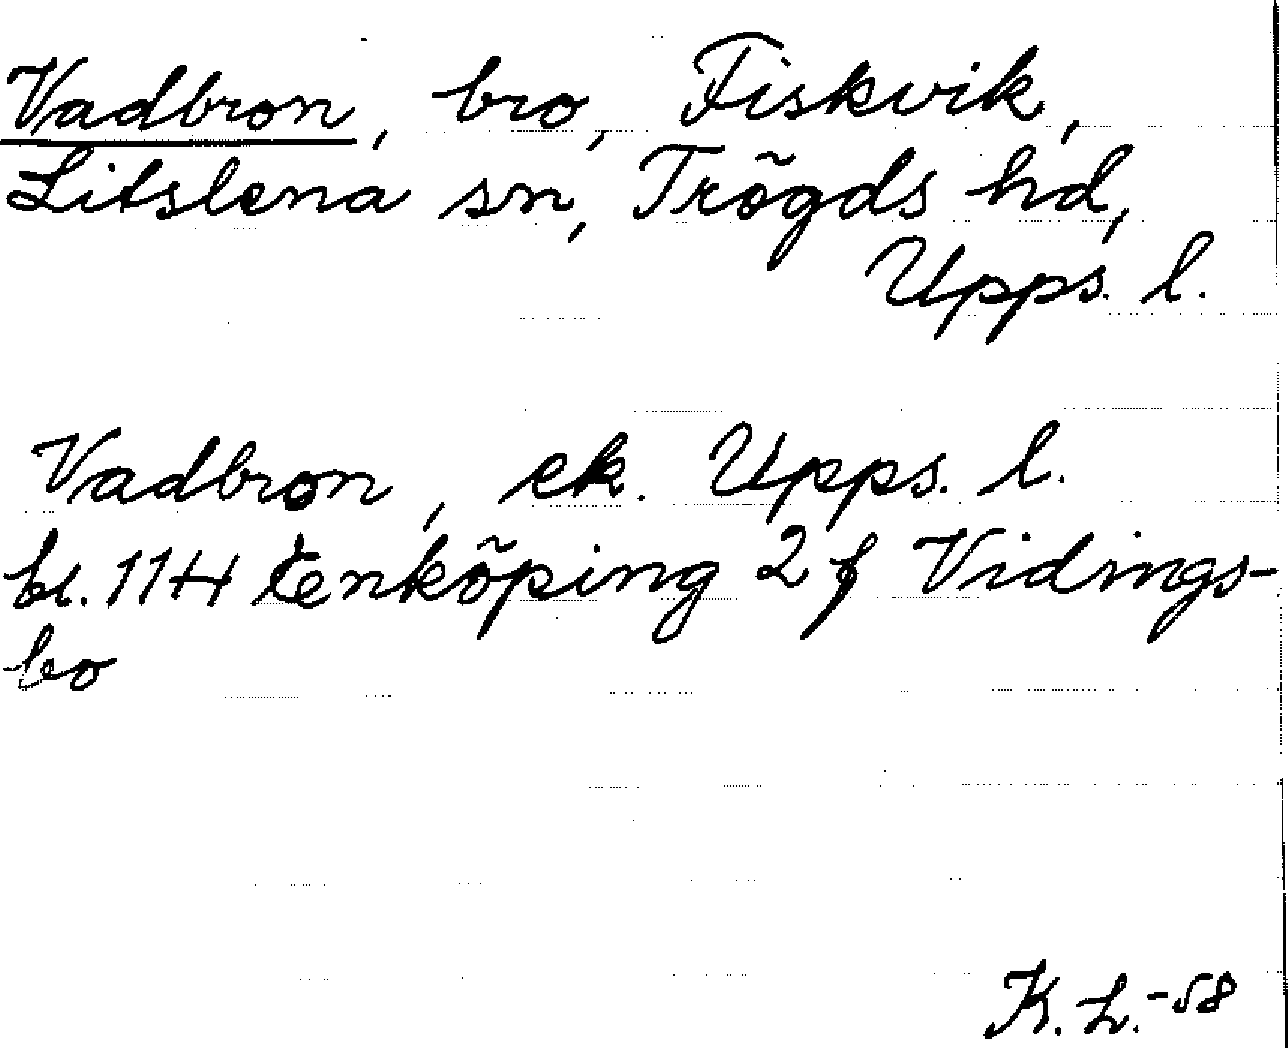 Vadbron, bro, Fiskvik,
Litslena sn, Trögds hd,
Upps. l.
Vadbron, ek. Upps. l.
bl. 11H Enköping 2 f Vidings-
bo
K. L. -58